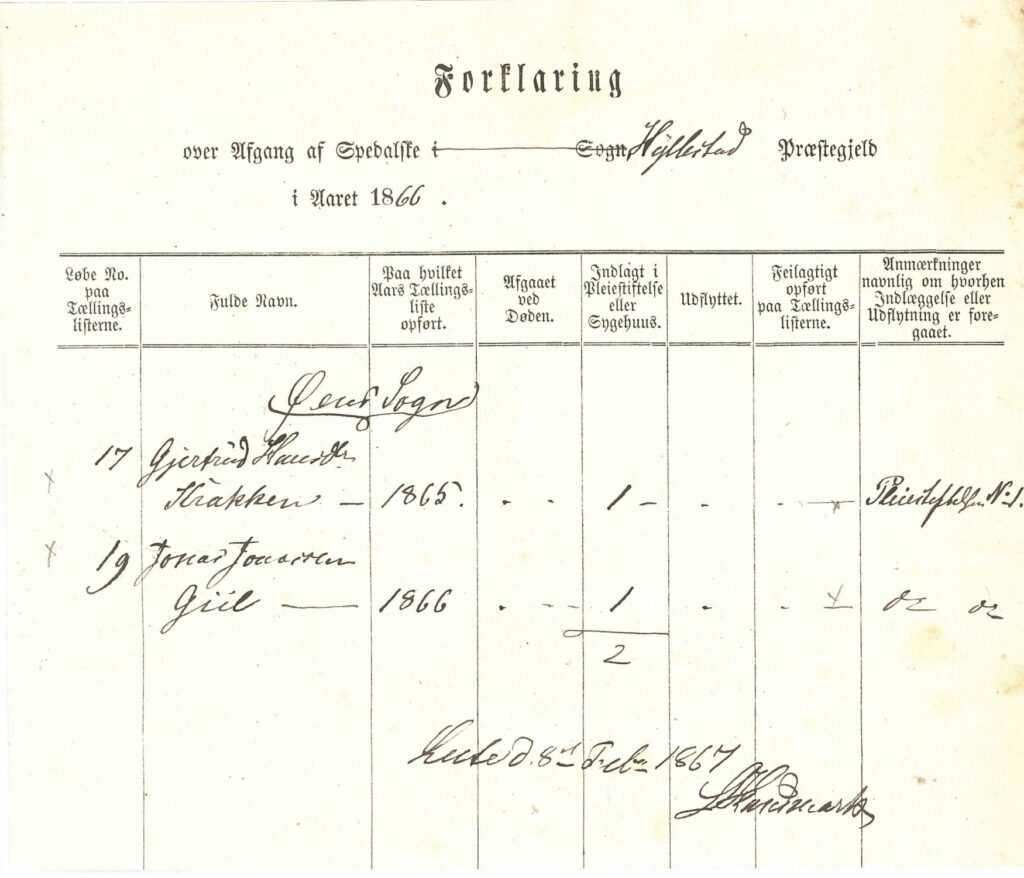 Forklaring
over Afgang af Spedalske i Sogn Hyllestad Præstegjeld
i Aaret 1866.
Løbe No. paa Tællings-listerne.
Fulde Navn.
Paa hvilket Aars Tællings-liste opført.
Afgaaet ved Døden.
Indlagt i Pleiestiftelse eller Sygehuus.
Udflyttet.
Feilagtigt opført paa Tællings-listerne.
Anmærkninger navnlig om hvorhen Indlæggelse eller Udflytning er fore-gaaet.
Øens Sogn
17 Gjertrud Hansdr
Krakken — 1865. 1 — Pleiestiftelsen No 1.
19 Jonas Jonassen
Giil — 1866 1 do do
2
d. 8de Febr 1867